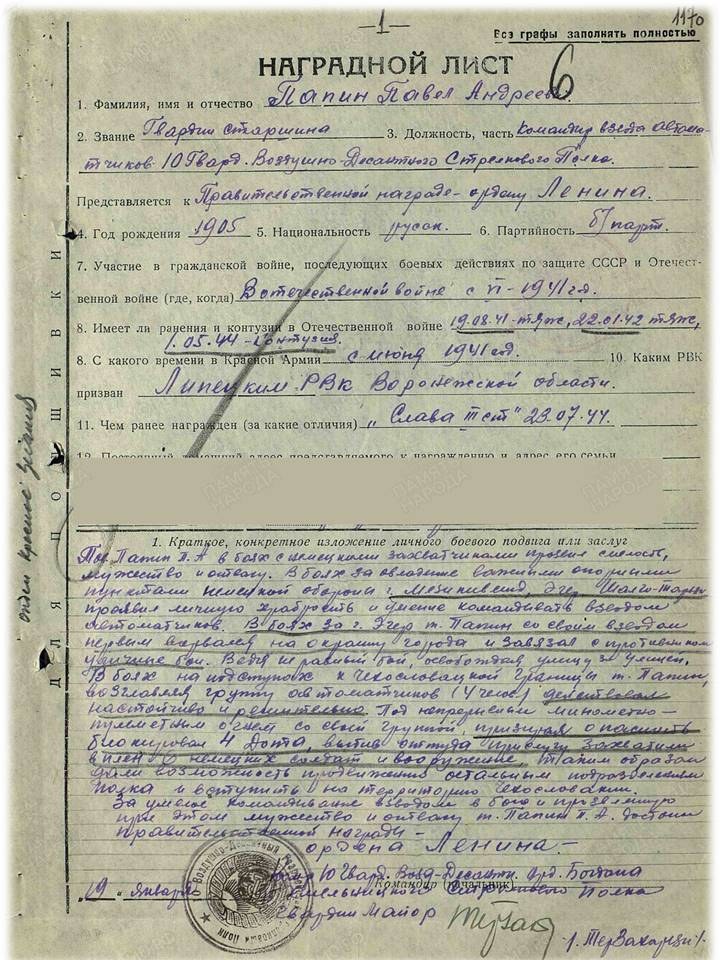 1170
—1—
Все графы заполнять полностью
НАГРАДНОЙ ЛИСТ
6
1. Фамилия, имя и отчество Папин Павел Андреев
2. Звание Гвардии старшина 3. Должность, часть Командир взвода автома-
тчиков 10 Гвард. Воздушно-Десантного Стрелкового Полка.
Представляется к Правительственной награде - ордену Ленина.
4. Год рождения 1905 5. Национальность русск. 6. Партийность б/парт.
7. Участие в гражданской войне, последующих боевых действиях по защите СССР и Отечест-
венной войне (где, когда) В отечественной войне с VI-1941 г.
8. Имеет ли ранения и контузии в Отечественной войне 19.08.41-тяж, 22.01.42 тяж,
1.05.44-контузия.
8. С какого времени в Красной Армии с июня 1941 год 10. Каким РВК
призван Липецким РВК Воронежской области.
11. Чем ранее награжден (за какие отличия) „Слава III ст" 23.07.44.
12. Постоянный домашний адрес представляемого к награждению и адрес его семьи
ПАМЯТЬ НАРОДА
1. Краткое, конкретное изложение личного боевого подвига или заслуг
Тов. Папин П.А в боях с немецкими захватчиками проявил смелость,
мужество и отвагу. В боях за овладение важными опорными
пунктами немецкой обороны г. Эгер
проявил личную храбрость и умение командывать взводом
автоматчиков. В боях за г. Эгер т. Папин со своим взводом
первым ворвался на окраину города и завязал с противником
уличные бои. Ведя неравный бой, освобождая улицу за улицей,
В боях на подступах к Чехословацкой границы т. Папин,
возглавляя группу автоматчиков (4 чел.) действовал
настойчиво и решительно. Под непрерывным минометно-
пулеметным огнем со своей группой, презирая опасность
блокировал 4 Дота, выбив оттуда прислугу захватили
в плен 6 немецких солдат и вооружение, таким образом
дали возможность продвижению остальным подразделениям
полка и вступить на территорию Чехословакии.
За умелое командивание взводом в бою и проявленную
при этом мужество и отвагу т. Папин П. А. достоин
правительственной награды -
ордена Ленина.-
10 Гвард. Возд-Десантн. Орд. Богдана
Командир (начальник)
Хмельницкого Стрелкового Полка
„19" января
Гвардии Майор
ДЛЯ ПОДШИВКИ